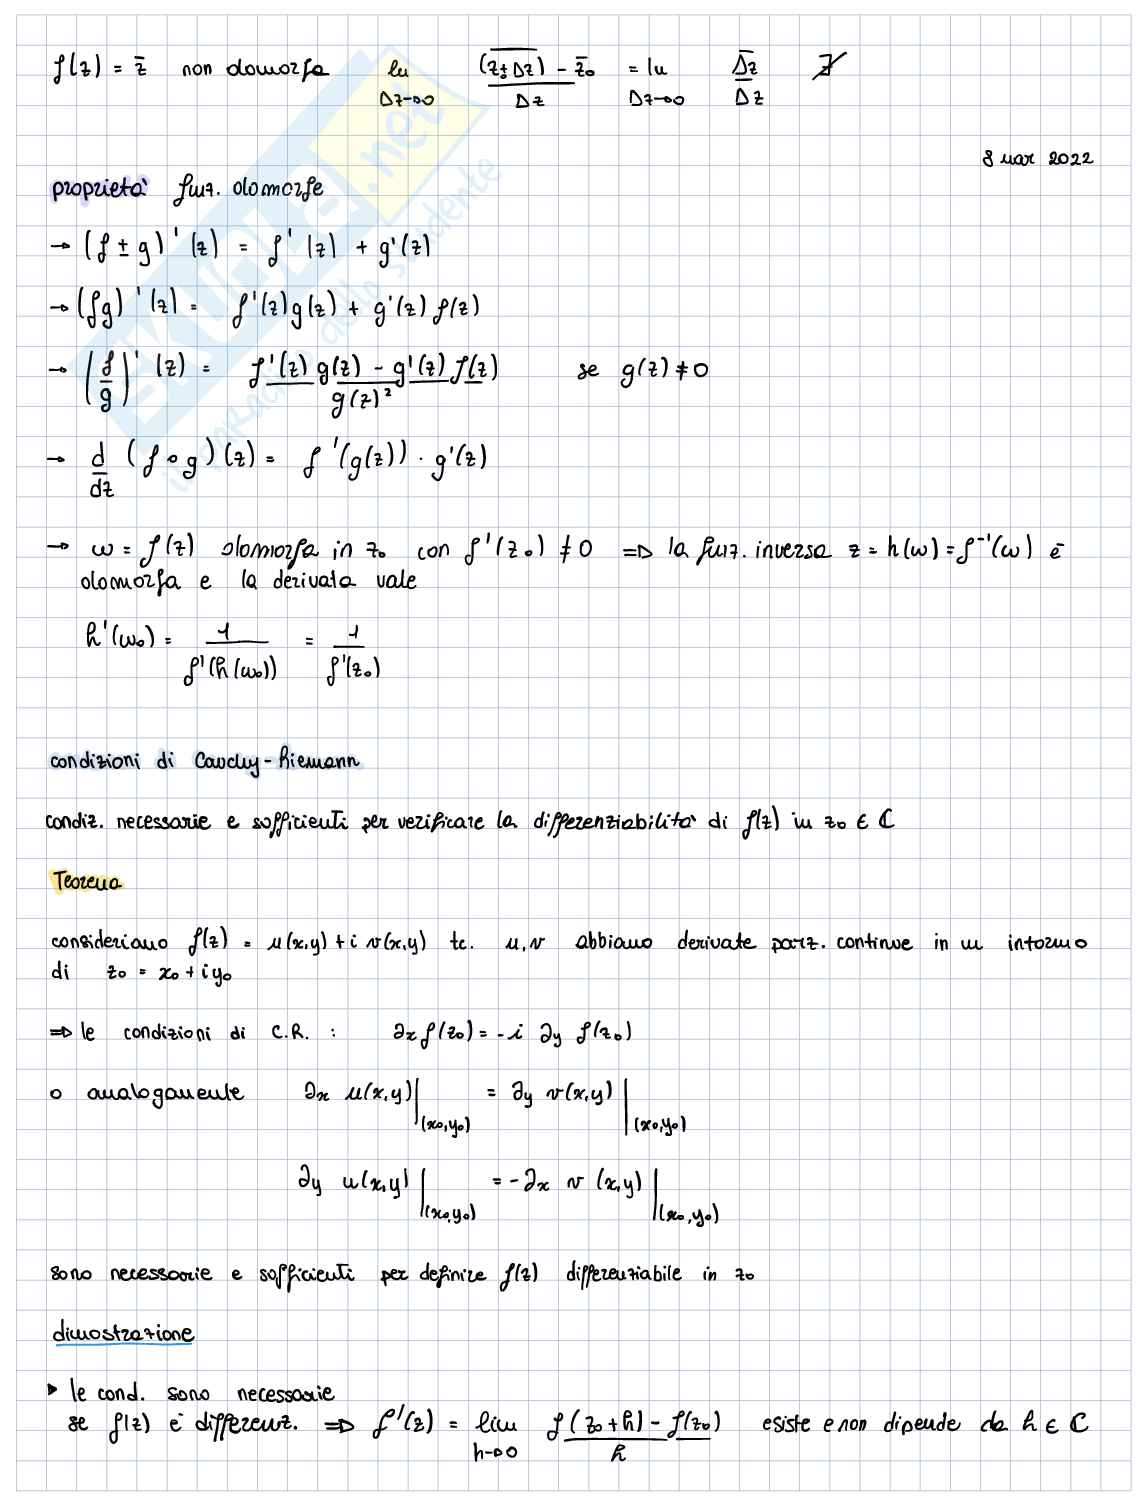 f(z) = z̄ non olomorfa lim Δz→0 (z₀+Δz)‾ - z̄₀ / Δz = lim Δz→0 Δz‾ / Δz ∄
8 mar 2022
proprietà funz. olomorfe
→ (f ± g)'(z) = f'(z) + g'(z)
→ (fg)'(z) = f'(z)g(z) + g'(z) f(z)
→ (f/g)'(z) = f'(z) g(z) - g'(z) f(z) / g(z)² se g(z) ≠ 0
→ d/dz (f∘g)(z) = f'(g(z)) · g'(z)
→ ω = f(z) olomorfa in z₀ con f'(z₀) ≠ 0 ⇒ la funz. inversa z = h(ω) = f⁻¹(ω) è
olomorfa e la derivata vale
h'(ω₀) = 1 / f'(h(ω₀)) = 1 / f'(z₀)
condizioni di Cauchy-Riemann
condiz. necessarie e sufficienti per verificare la differenziabilità di f(z) in z₀ ∈ ℂ
Teorema
consideriamo f(z) = u(x,y) + i v(x,y) t.c. u,v abbiamo derivate parz. continue in un intorno
di z₀ = x₀ + iy₀
⇒ le condizioni di C.R. : ∂x f(z₀) = -i ∂y f(z₀)
o analogamente ∂x u(x,y)|(x₀,y₀) = ∂y v(x,y)|(x₀,y₀)
∂y u(x,y)|(x₀,y₀) = -∂x v(x,y)|(x₀,y₀)
sono necessarie e sufficienti per definire f(z) differenziabile in z₀
dimostrazione
▸ le cond. sono necessarie
se f(z) è differenz. ⇒ f'(z) = lim h→0 f(z₀+h) - f(z₀) / h esiste e non dipende da h ∈ ℂ
SKUOLA.net
il paradiso dello studente